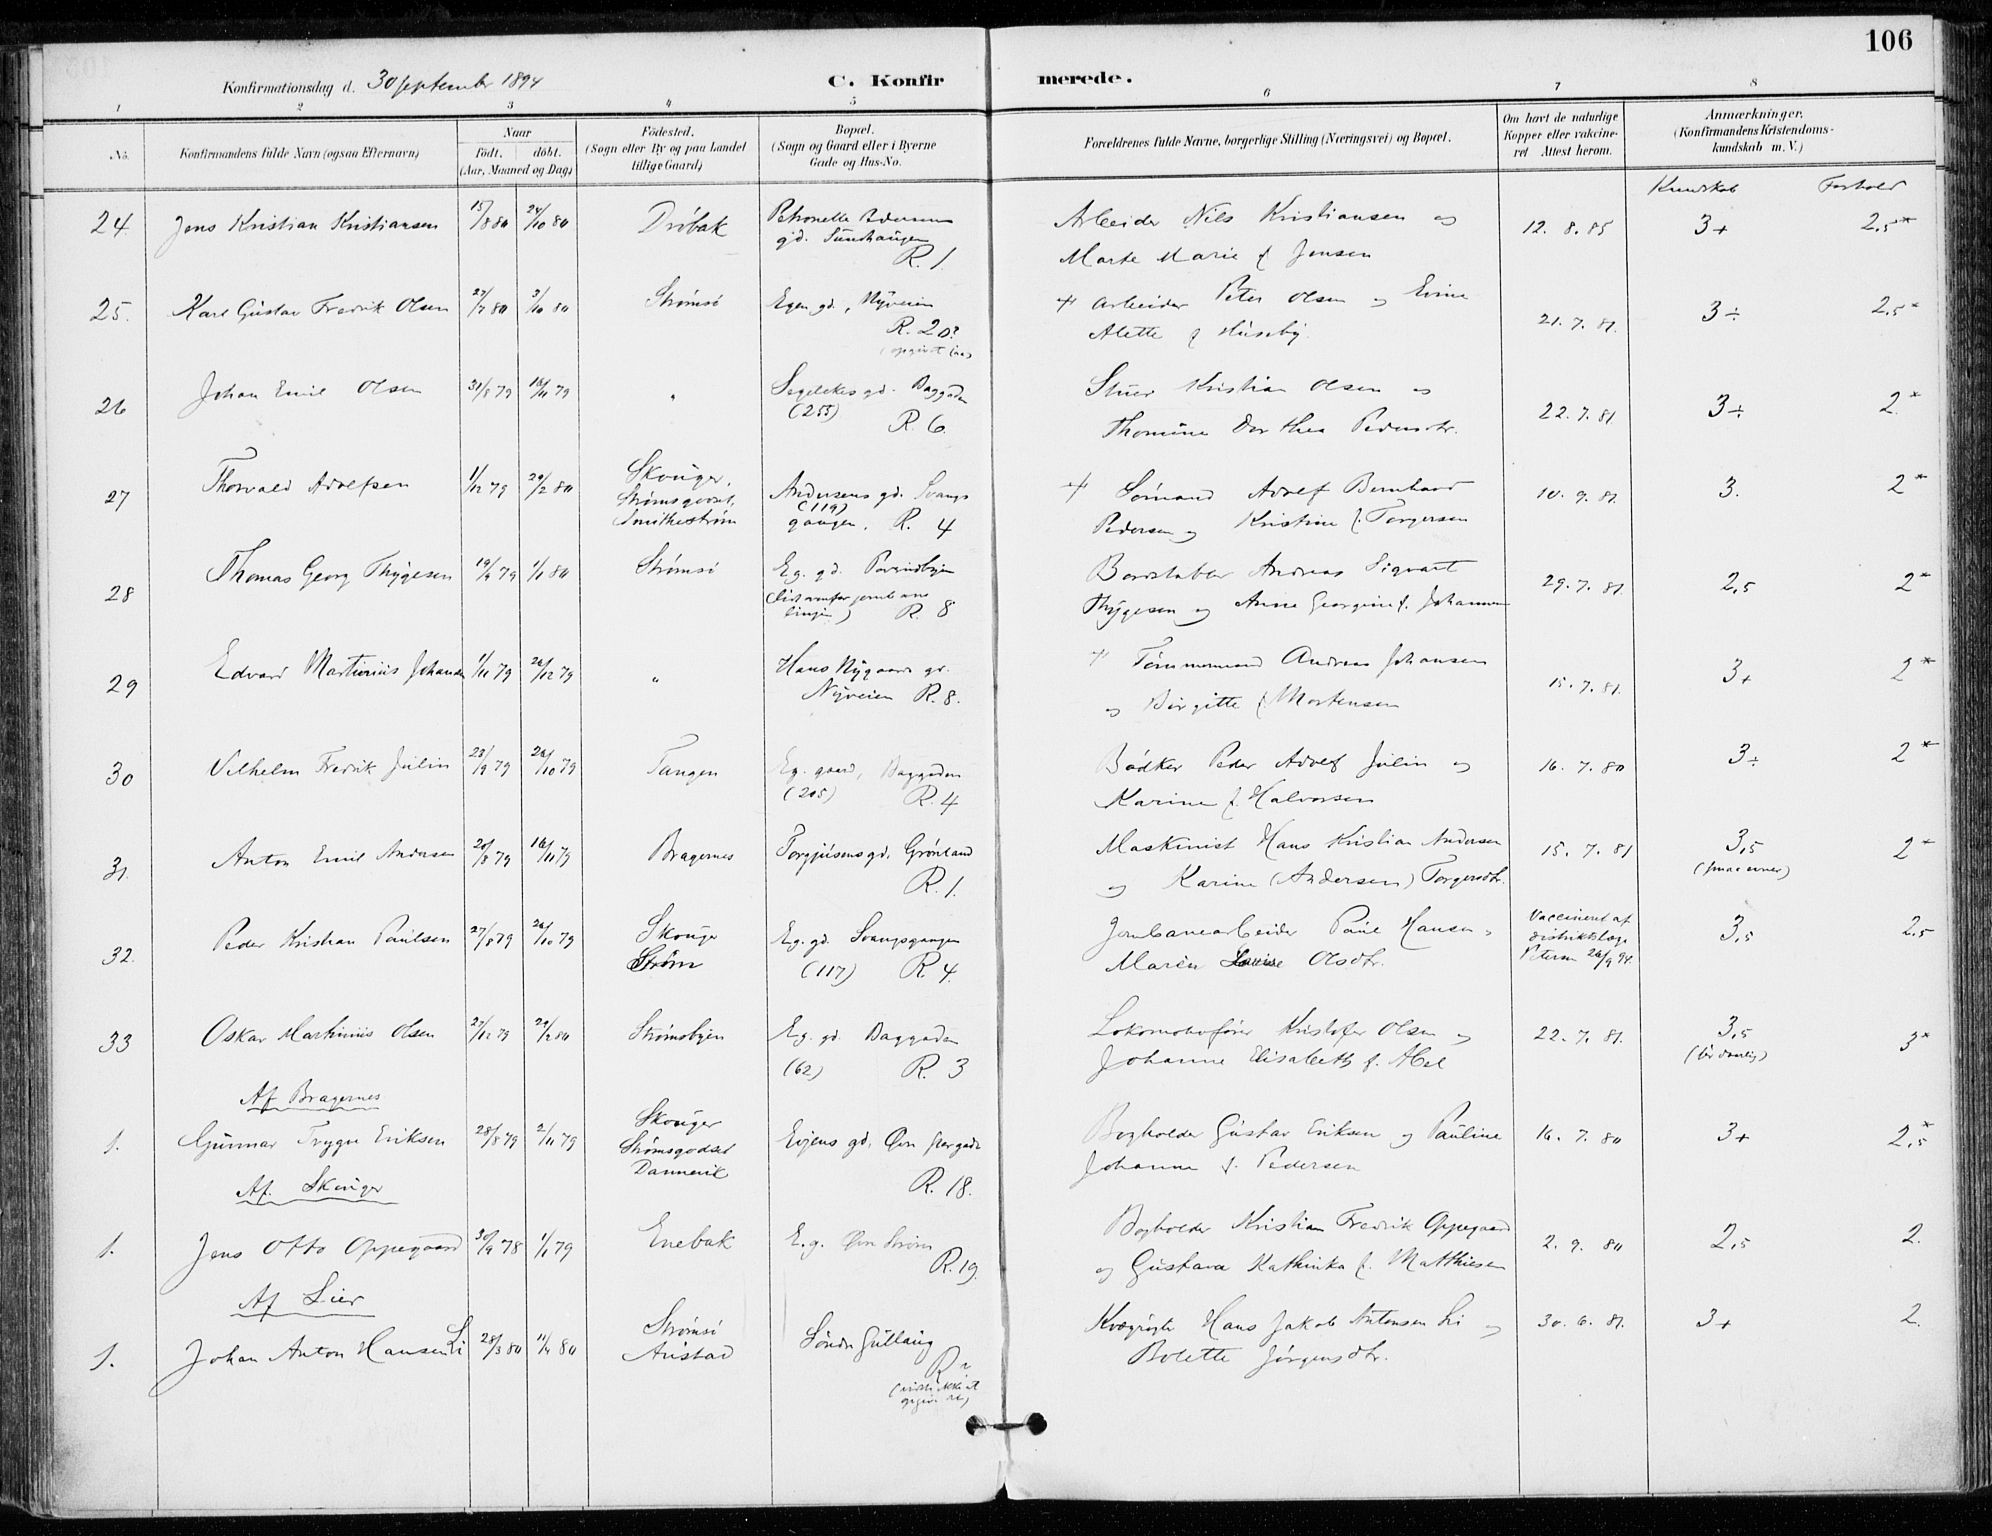 106
Konfirmationsdag d. 30 september 1894
C. Konfirmerede.
1 2 3 4 5 6 7 8
No.
Konfirmandens fulde Navn (ogsaa Efternavn)
Naar
født. døbt.
(Aar, Maaned og Dag)
Fødested.
(Sogn eller By og paa Landet
tillige Gaard)
Bopæl.
(Sogn og Gaard eller i Byerne
Gade og Hus-No.
Forældrenes fulde Navne, borgerlige Stilling (Næringsvei) og Bopæl.
Om havt de naturlige
Kopper eller vakcine-
ret Attest herom.
Anmærkninger.
(Konfirmandens Kristendoms-
kundskab m. V.)
Kundskab Forhold
24. Jens Kristian Kristiansen 15/8 80 24/10 80 Drøbak Petronelle Pedersens
gd. Sundhaugen
R. 1.
Arbeider Nils Kristiansen og
Marte Marie f. Jensen
12. 8. 85 3+ 2,5*
25. Karl Gustav Fredrik Olsen 27/7 80 3/10 80 Strømsø Egen gd., Nyveien
R. 20?
+ Arbeider Peter Olsen og Evine
Alette f Huseby.
21. 7. 81. 3÷ 2,5*
26 Johan Emil Olsen 31/8 79 16/11 79 " gd. Baggaden
(255) R. 6.
Stuer Kristian Olsen og
Thomine Dorthea Pedersdtr.
22. 7. 81 3÷ 2.*
27 Thorvald Adolfsen 1/12 79 29/2 80 Skouger,
Strømsgodset,
Smithestrøm
Andersens gd. Svangs
(119)
gangen, R. 4
+ Sømand Adolf Bernhard
Pedersen og Kristine f. Torgersen
10. 9. 81. 3. 2*
28 Thomas Georg Thygesen 19/9 79 1/1 80 Strømsø Eg. gd.
R. 8
Bordstabler Andreas Sigvart
Thygesen og Anne Georgine f. Johannesen
29. 7. 81. 2,5 2*
29 Edvard Martinius Johansen 1/11 79 26/12 79 " Hans Nygaards gd.
Nyveien R. 8.
+ Tømmermand Andreas Johansen
og Birgitte f Mortensen
15. 7. 81. 3+ 2*
30 Vilhelm Fredrik Julin 23/9 79 26/10 79 Tangen Eg. gaard, Baggaden
(205) R. 4
Bødker Peder Adolf Julin og
Karine f. Halvorsen
16. 7. 80 3÷ 2*
31. Anton Emil Andersen 20/8 79 16/11 79 Bragernes Torgjusens gd. Grønland
R. 1.
Maskinist Hans Kristian Andersen
og Karine (Andersen) Torgersdtr.
15. 7. 81 3,5 2*
(smaa evner)
32. Peder Kristian Paulsen 27/8 79 26/10 79 Skouger
Strøm
Eg. gd. Svangsgangen
(117) R. 4.
Jernbanearbeider Paul Hansen og
Maren Louise Olsdtr.
Vaccineret af
distriktslæge
Petersen 26/9 94.
3,5 2,5
33 Oskar Martinius Olsen 27/12 79 29/2 80 Strømsbyen Eg. gd. Baggaden
(62) R. 3
Lokomotivfører Kristofer Olsen og
Johanne Elisabeth f. Abel
22. 7. 81. 3,5 3*
Af Bragernes
1. Gunnar Trygve Eriksen 28/8 79 2/11 79 Skouger
Strømsgodset
Dannevik
Evjens gd. Øvre Storgade
R. 18.
Bogholder Gustav Eriksen og Pauline
Johanne f. Pedersen
16. 7. 80 3+ 2,5*
Af. Skouger
1. Jens Otto Oppegaard 30/9 78 1/1 79 Enebak E. g. Øvre Strøm
R. 19.
Bogholder Kristian Fredrik Oppegaard
og Gustava Kathinka f. Matthiesen
2. 9. 80 2,5 2.
Af Lier
1. Johan Anton Hansen Li 28/3 80 11/4 80 Strømsø
Austad
Søndre Gullaug
R ?
Kvægrøgter Hans Jakob Antonsen Li og
Bolette Jørgensdtr.
30. 6. 81. 3+ 2.